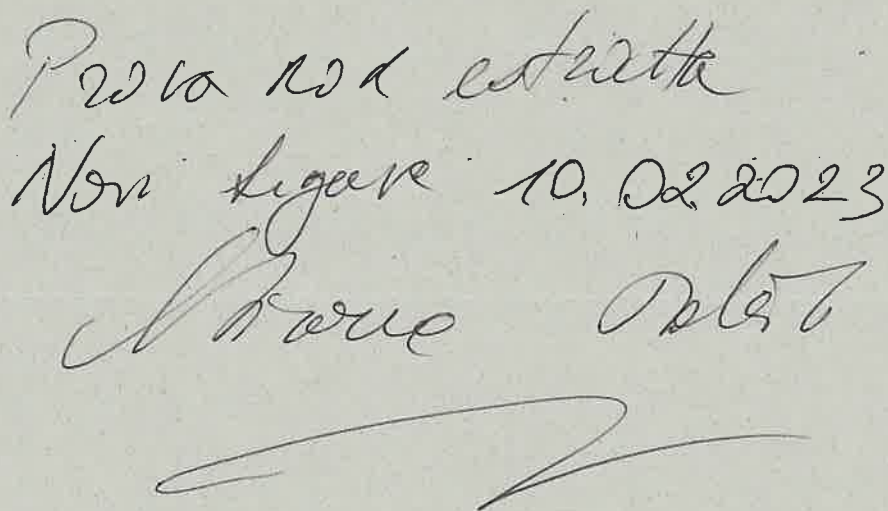 Prova non estratta
Novi Ligure 10.02.2023